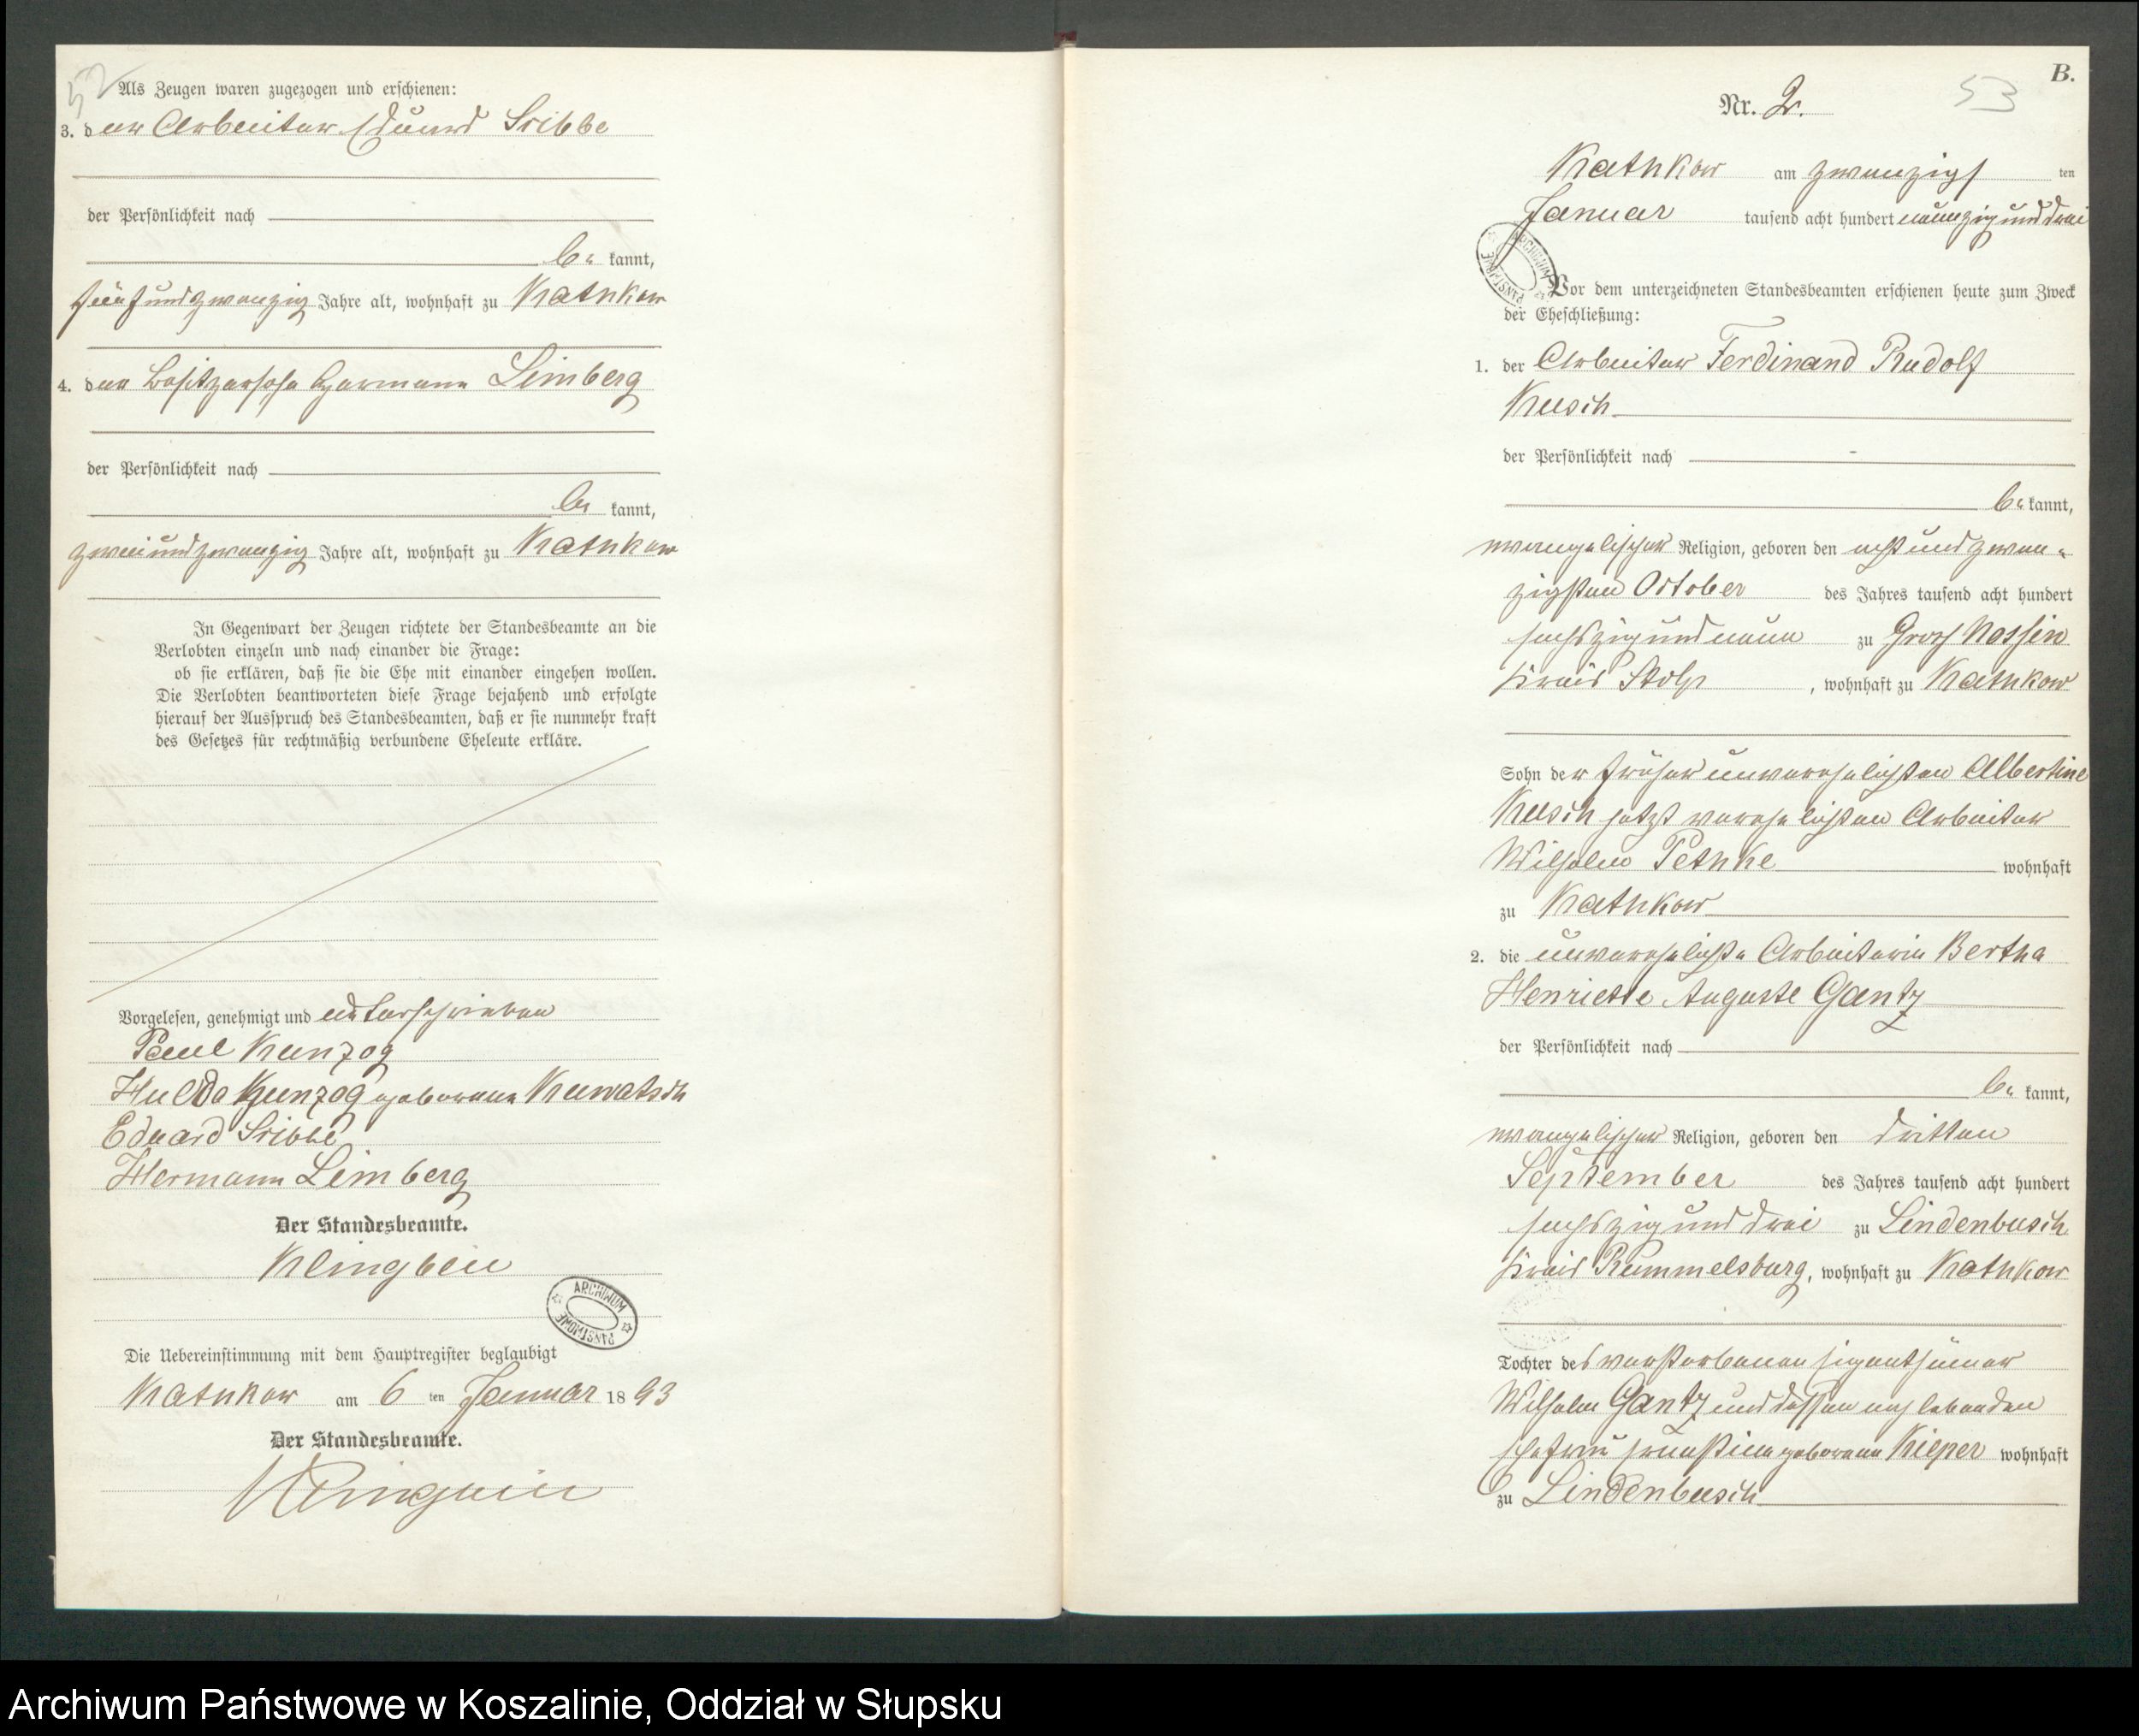 52
Als Zeugen waren zugezogen und erschienen:
3. der Arbeiter Eduard Sribbe
der Persönlichkeit nach
be kannt,
fünfundzwanzig Jahre alt, wohnhaft zu Kathkow
4. der Besitzersohn Hermann Limberg
der Persönlichkeit nach
be kannt,
zweiundzwanzig Jahre alt, wohnhaft zu Kathkow
In Gegenwart der Zeugen richtete der Standesbeamte an die
Verlobten einzeln und nach einander die Frage:
ob sie erklären, daß sie die Ehe mit einander eingehen wollen.
Die Verlobten beantworteten diese Frage bejahend und erfolgte
hierauf der Ausspruch des Standesbeamten, daß er sie nunmehr kraft
des Gesetzes für rechtmäßig verbundene Eheleute erkläre.
Vorgelesen, genehmigt und unterschrieben
Paul Kunzog
Hulda Kunzog geborene Kuwatsch
Eduard Sribbe
Hermann Limberg
Der Standesbeamte.
Klingbeil
ARCHIWUM PAŃSTWOWE
Die Uebereinstimmung mit dem Hauptregister beglaubigt
Kathkow am 6 ten Januar 18 93
Der Standesbeamte.
Klingbeil
B.
Nr. 2.
53
Kathkow am zwanzigs ten
Januar tausend acht hundert neunzig und drei
ARCHIWUM PAŃSTWOWE
Vor dem unterzeichneten Standesbeamten erschienen heute zum Zweck
der Eheschließung:
1. der Arbeiter Ferdinand Rudolf
Kusch
der Persönlichkeit nach
be kannt,
evangelischer Religion, geboren den acht und zwan-
zigsten October des Jahres tausend acht hundert
sechszig und neun zu Groß Nossin
Kreis Stolp, wohnhaft zu Kathkow
Sohn der früher unverehelichten Albertine
Kusch jetzt verehelichten Arbeiter
Wilhelm Pethke wohnhaft
zu Kathkow
2. die unverehelichte Arbeiterin Bertha
Henriette Auguste Gantz
der Persönlichkeit nach
be kannt,
evangelischer Religion, geboren den dritten
September des Jahres tausend acht hundert
sechszig und drei zu Lindenbusch
Kreis Rummelsburg, wohnhaft zu Kathkow
Tochter des verstorbenen Eigenthümer
Wilhelm Gantz und dessen noch lebenden
Ehefrau Ernestine geborene Kieper wohnhaft
zu Lindenbusch
Archiwum Państwowe w Koszalinie, Oddział w Słupsku